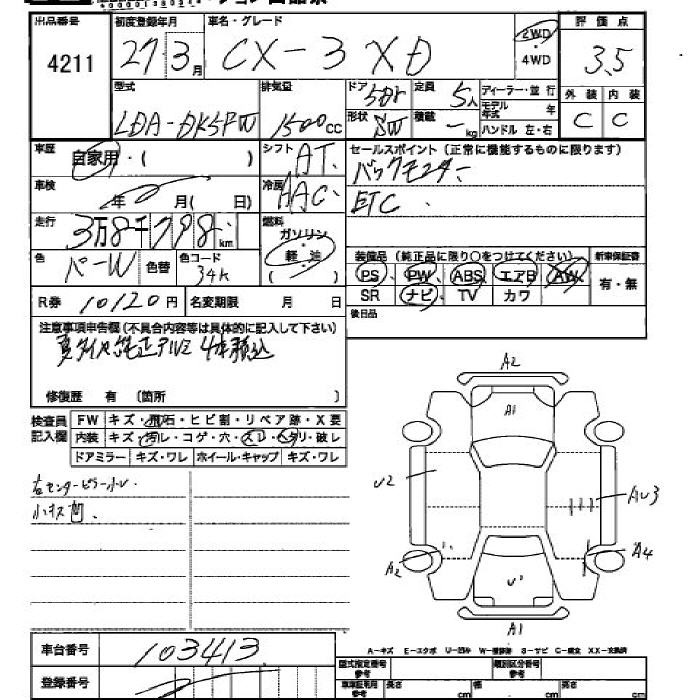 出品番号 初度登録年月 車名・グレード 評価点
4211 27 3月 CX-3 XD 2WD・4WD 3.5
型式 排気量 ドア 5Dr 定員 5人 ディーラー・並行 外装 内装
LDA-DK5FW 1500cc 形状 SW 積載 - kg モデル年式 年 C C
ハンドル 左・右
車歴 自家用・( ) シフト AT セールスポイント(正常に機能するものに限ります)
バックモニター
車検 年 月( 日) 冷房 AAC ETC
走行 3万8千798km 燃料 ガソリン・軽油 ( )
色 パーW 色替 色コード 34K 装備品(純正品に限り○をつけてください) 新車保証書
PS PW ABS エアB AW 有・無
R券 10120円 名変期限 月 日 SR ナビ TV カワ
後日品
注意事項申告欄(不具合内容等は具体的に記入して下さい)
夏タイヤ純正アルミ4本積込
修復歴 有 〔箇所 〕
検査員記入欄 FW キズ・飛石・ヒビ割・リペア跡・X要
内装 キズ・汚レ・コゲ・穴・スレ・ヘタリ・破レ
ドアミラー キズ・ワレ ホイール・キャップ キズ・ワレ
右センターピラー小レ
小キズ凹.
A2
A1
U2
AU3
A2
A4
U'
A1
A-キズ E-エクボ U-凹み W-補修跡 S-サビ C-腐食 XX-交換済
車台番号 103413
登録番号
型式指定番号 参考 類別区分番号 参考
車車証明用 参考 長さ cm 幅 cm 高さ cm